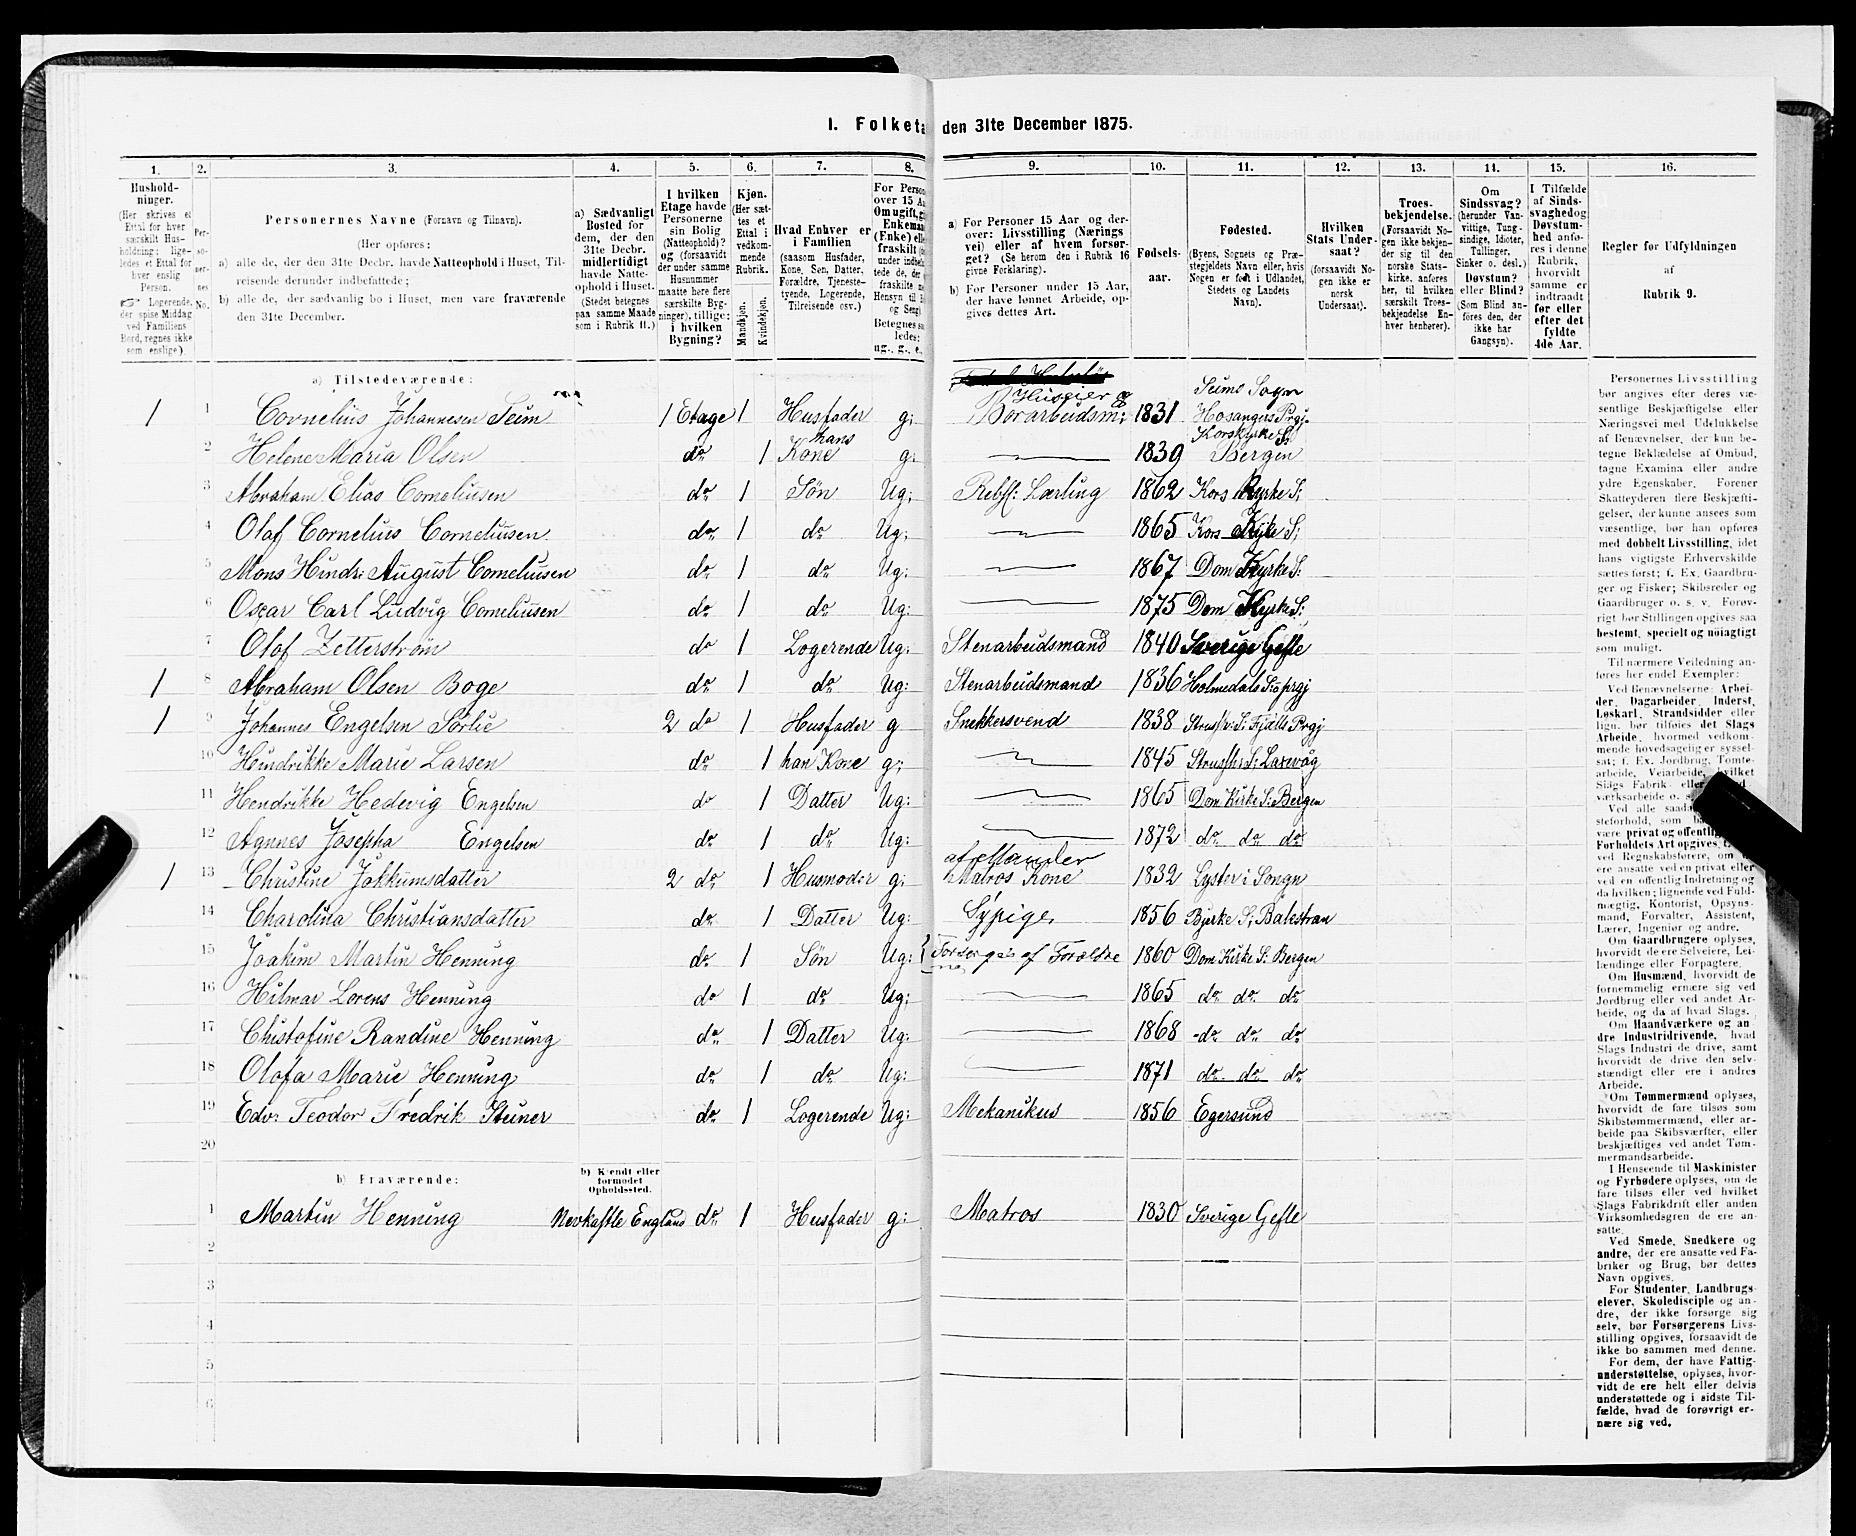 I. Folketa den 31te December 1875.
1. 2. 3. 4. 5. 6. 7. 8. 9. 10. 11. 12. 13. 14. 15. 16.
Hushold-
ninger.
(Her skrives et
Ettal for hver
særskilt Hus-
holdning; lige-
ledes et Ettal for
hver enslig
Person.
Logerende,
der spise Middag
ved Familiens
Bord, regnes ikke
som enslige).
Per-
so-
ner-
nes
No.
Personernes Navne (Fornavn og Tilnavn).
(Her opføres:
a) alle de, der den 31te Decbr. havde Natteophold i Huset, Til-
reisende derunder indbefattede;
b) alle de, der sædvanlig bo i Huset, men vare fraværende
den 31te December.
a) Sædvanligt
Bosted for
dem, der den
31te Decbr.
midlertidigt
havde Natte-
ophold i Huset.
(Stedet betegnes
paa samme Maade
som i Rubrik 11.)
I hvilken
Etage havde
Personerne
sin Bolig
(Natteophold)?
og (forsaavidt
der under samme
Husnummer
maatte høre flere
særskilte Byg-
ninger), tillige:
i hvilken
Bygning?
Kjøn.
(Her sæt-
tes et
Ettal i
vedkom-
mende
Rubrik.
Mandkjøn.
Kvindekjøn.
Hvad Enhver er
i Familien
(saasom Husfader,
Kone, Søn, Datter,
Forældre, Tjeneste-
tyende, Logerende,
Tilreisende osv.)
For Person
over 15 Aa
Om ugift, gi
Enkema
(Enke) elle
fraskilt
Betegnes saa
ledes:
ug., g., e.,
a) For Personer 15 Aar og der-
over: Livsstilling (Nærings
vei) eller af hvem forsør-
get? (Se herom den i Rubrik 16
givne Forklaring).
b) For Personer under 15 Aar,
der have lønnet Arbeide, op-
gives dettes Art.
Fødsels-
aar.
Fødested.
(Byens, Sognets og Præ-
stegjeldets Navn eller, hvis
Nogen er født i Udlandet,
Stedets og Landets
Navn).
Hvilken
Stats Under-
saat?
(forsaavidt No-
gen ikke er
norsk
Undersaat).
Troes-
bekjendelse.
(Forsaavidt No-
gen ikke bekjen-
der sig til den
norske Stats-
kirke, anføres
her, til hvilken
særskilt Troes-
bekjendelse En-
hver henhører).
Om
Sindssvag?
(herunder Van-
vittige, Tung-
sindige, Idioter,
Tullinger,
Sinker o. desl.)
Døvstum?
eller Blind?
(Som Blind an-
føres den, der
ikke har
Gangsyn).
I Tilfælde
af Sinds-
svaghed og
Døvstum-
hed anfø-
res i denne
Rubrik,
hvorvidt
samme er
indtraadt
før eller
efter det
fyldte
4de Aar.
Regler før Udfyldningen
af
Rubrik 9.
a) Tilstedeværende:
1 1 Cornelius Johannesen Seim 1 Etage 1 Husfader g; Huseier & Borarbeidsm: 1831 Seims Sogn Hosangers Prgj.
2 Helene Maria Olsen do 1 hans Kone g: 1839 Korskyrke S: Bergen
3 Abraham Elias Corneliusen do 1 Søn Ug; Rebsl: Lærling 1862 Kors Kyrke S;
4 Olaf Cornelius Corneliusen do 1 do Ug; 1865 Kors Kyke S;
5 Mons Hindr: August Corneliusen do 1 do Ug: 1867 Dom Kyrke S:
6 Oscar Carl Ludvig Corneliusen do 1 do Ug: 1875 Dom Kyrke S:
7 Olof Zetterstrøm do 1 Logerende Ug: Stenarbeidsmand 1840 Sverige Gefle
1 8 Abraham Olsen Boge do 1 do Ug: Stenarbeidsmand 1836 Holmedals S: o prgj
1 9 Johannes Engelsen Sørlie 2 do 1 Husfader g Snekkersvend 1838 Strusshv: S: Fjælls Prgj
10 Hindrikke Marie Larsen do 1 han Kone g; 1845 Strussh: S: Laxevåg
11 Hendrikke Hedevig Engelsen do 1 Datter Ug: 1865 Dom Kirke S: Bergen
12 Agnnes Josepha Engelsen do 1 do Ug: 1872 do do do
1 13 Christine Jokkumsdatter 2 do 1 Husmoder g; Matros Kone 1832 Lyster i Songn
14 Charolina Christiansdatter do 1 Datter Ug: Sypige, 1856 Bjerke S; Balestran
15 Joakim Martin Henning do 1 Søn Ug: Forsørges af Forældre ne 1860 Dom Kirke S: Bergen
16 Hilmar Lorens Henning do 1 do Ug: 1865 do do do
17 Christofine Randine Henning do 1 Datter Ug: 1868 do do do
18 Olofa Marie Henning do 1 do Ug: 1871 do do do
19 Edv: Teodor Fredrik Steiner do 1 Logerende Ug: Mekanikus 1856 Egersund
20
b) Fraværende:
b) Kjendt eller
formodet
Opholdssted.
1 Martin Henning Nevkastle England do 1 Husfader g: Matros 1830 Sverige Gefle
2
3
4
5
6
Personernes Livsstilling
bør angives efter deres væ-
sentlige Beskjæftigelse eller
Næringsvei med Udelukkelse
af Benævnelser, der kun be-
tegne Beklædelse af Ombud,
tagne Examina eller andre
ydre Egenskaber. Forener
Skatteyderen flere Beskjæfti-
gelser, der kunne ansees som
væsentlige, bør han opføres
med dobbelt Livsstilling, idet
hans vigtigste Erhvervskilde
sættes først; f. Ex. Gaardbru-
ger og Fisker; Skibsreder og
Gaardbruger o. s. v. Forøv-
rigt bør Stillingen opgives saa
bestemt, specielt og nøiagtigt
som muligt.
Til nærmere Veiledning an-
føres her endel Exempler:
Ved Benævnelserne: Arbei-
der, Dagarbeider, Inderst,
Løskarl, Strandsidder eller
lign. bør tilføies det Slags
Arbeide, hvormed vedkom-
mende hovedsagelig er syssel-
sat; f. Ex. Jordbrug, Tomte-
arbeide, Veiarbeide, hvilket
Slags Fabrik eller
værksarbeide o. s.
Ved alle saada
steforhold, som
være privat og offentlig
Forholdets Art opgives,
ved Regnskabsførere, om
ere ansatte ved en privat eller
ved en offentlig Indretning og
da hvilken; lignende ved Fuld-
mægtig, Kontorist, Opsyns-
mand, Forvalter, Assistent,
Lærer, Ingeniør og andre.
Om Gaardbrugere oplyses,
hvorvidt de ere Selveiere, Lei-
lændinge eller Forpagtere.
Om Husmænd, hvorvidt de
fornemmelig ernære sig ved
Jordbrug eller ved andet Ar-
beide, og da af hvad Slags.
Om Haandværkere og an
dre Industridrivende, hvad
Slags Industri de drive, samt
hvorvidt de drive den selv-
stændigt eller ere i andres
Arbeide.
Om Tømmermænd oplyses,
hvorvidt de fare tilsøs som
Skibstømmermænd, eller ar-
beide paa Skibsværfter, eller
beskjæftiges ved andet Tøm-
mermandsarbeide.
I Henseende til Maskinister
og Fyrbødere oplyses, om de
fare tilsøs eller ved hvilket
Slags Fabrikdrift eller anden
Virksomhedsgren de ere an-
satte.
Ved Smede, Snedkere og
andre, der ere ansatte ved Fa-
briker og Brug, bør dettes
Navn opgives.
For Studenter, Landbrugs-
elever, Skoledisciple og an-
dre, der ikke forsørge sig
selv, bør Forsørgerens Livs-
stilling opgives, forsaavidt de
ikke bo sammen med denne.
For dem, der have Fattig-
understøttelse, oplyses, hvor-
vidt de ere helt eller delvis
understøttede og i sidste Til-
fælde, hvad de forøvrigt er-
nære sig ved.